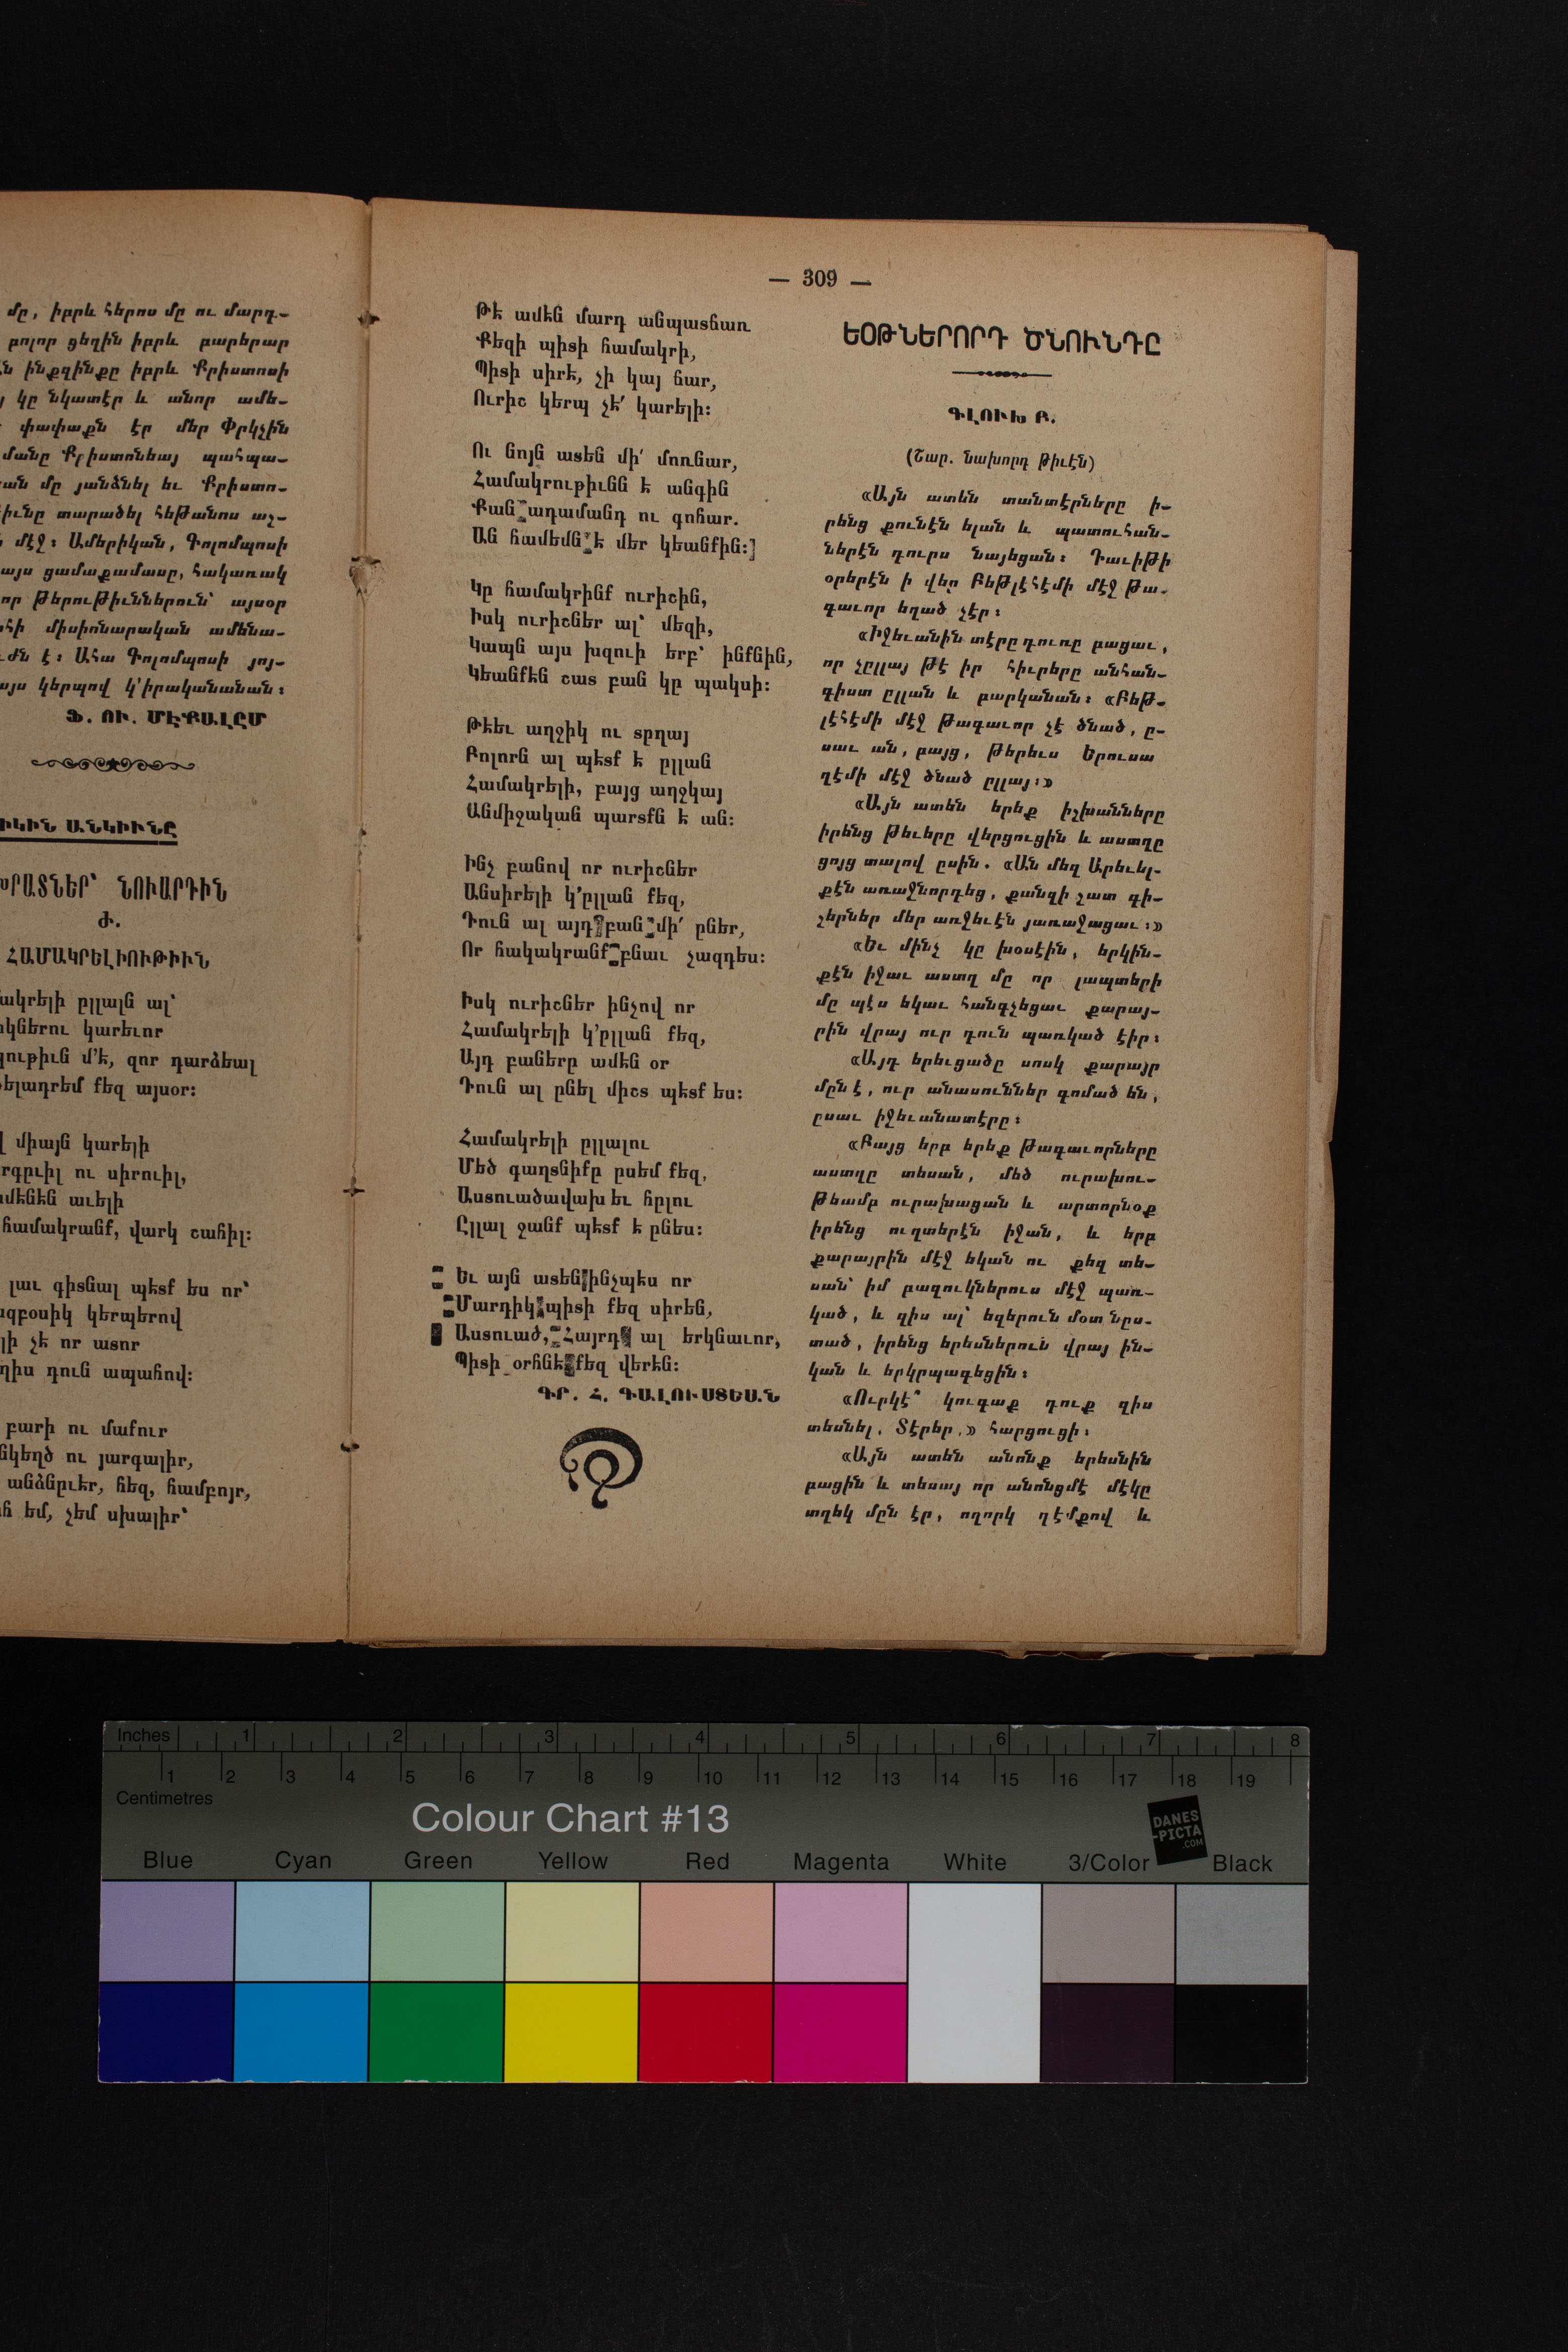 մը, իբրև հերոս մը ու մարդ-
բոլոր ցեղին իբրև բարերար
ինքզինքը իբրև Քրիստոսի
կը նկատէր և անոր ամե-
փափաքն էր մեր Փրկչին
մանը Քրիստոնեայ պահպա-
մը յանձնել եւ Քրիստո-
տարածել հեթանոս աշ-
մէջ։ Ամերիկան, Գոլոմպոսի
այս ցամաքամասը, հակառակ
որ թերութիւններուն՝ այսօր
միսիոնարական ամենա-
է։ Ահա Գոլոմպոսի յոյ-
այս կերպով կ՚իրականանան։
Ֆ. ՈՒ. ՄԷՔԱԼԸՄ
ԱՆԿԻՒՆԸ
ՆՈՒԱՐԴԻՆ
Ժ.
ՀԱՄԱԿՐԵԼԻՈՒԹԻՒՆ
ըլլալն ալ՝
կարեւոր
մ՚է, զոր դարձեալ
քեզ այսօր։
միայն կարելի
ու սիրուիլ,
աւելի
համակրանք, վարկ շահիլ։
լաւ գիտնալ պէտք ես որ՝
կերպերով
չէ որ ատոր
դուն ապահով։
բարի ու մաքուր
ու յարգալիր,
անձնըւէր, հեզ, համբոյր,
եմ, չեմ սխալիր՝
— 309 —
Թէ ամէն մարդ անպատճառ
Քեզի պիտի համակրի,
Պիտի սիրէ, չի կայ ճար,
Ուրիշ կերպ չէ՛ կարելի։
Ու նոյն ատեն մի՛ մոռնար,
Համակրութիւնն է անգին
Քան ադամանդ ու գոհար.
Ան համեմն է մեր կեանքին։]
Կը համակրինք ուրիշին,
Իսկ ուրիշներ ալ՝ մեզի,
Կապն այս խզուի երբ՝ ինքնին,
Կեանքէն շատ բան կը պակսի։
Թէեւ աղջիկ ու տըղայ
Բոլորն ալ պէտք է ըլլան
Համակրելի, բայց աղջկայ
Անմիջական պարտքն է ան։
Ինչ բանով որ ուրիշներ
Անսիրելի կ՚ըլլան քեզ,
Դուն ալ այդ բան մի՛ ըներ,
Որ հակակրանք բնաւ չազդես։
Իսկ ուրիշներ ինչով որ
Համակրելի կ՚ըլլան քեզ,
Այդ բաները ամէն օր
Դուն ալ ընել միշտ պէտք ես։
Համակրելի ըլլալու
Մեծ գաղտնիքը ըսեմ քեզ,
Աստուածավախ եւ հըլու
Ըլլալ ջանք պէտք է ընես։
Եւ այն ատեն ինչպէս որ
Մարդիկ պիտի քեզ սիրեն,
Աստուած, Հայրդ ալ երկնաւոր,
Պիտի օրհնէ քեզ վերէն։
ԳՐ. Հ. ԳԱԼՈՒՍՏԵԱՆ
ԵՕԹՆԵՐՈՐԴ ԾՆՈՒՆԴԸ
ԳԼՈՒԽ Բ.
(Շար. նախորդ թիւէն)
«Այն ատեն տանտէրները ի-
րենց քունէն ելան և պատուհան-
ներէն դուրս նայեցան։ Դաւիթի
օրերէն ի վեր Բեթլէհէմի մէջ թա-
գաւոր եղած չէր։
«Իջեւանին տէրը դուռը բացաւ,
որ չըլլայ թէ իր հիւրերը անհան-
գիստ ըլլան և բարկանան։ «Բեթ-
լէհէմի մէջ թագաւոր չէ ծնած, ը-
սաւ ան, բայց, թերեւս Երուսա
ղէմի մէջ ծնած ըլլայ։»
«Այն ատեն երեք իշխանները
իրենց թեւերը վերցուցին և աստղը
ցոյց տալով ըսին. «Ան մեզ Արեւել-
քէն առաջնորդեց, քանզի շատ գի-
շերներ մեր առջեւէն յառաջացաւ։»
«Եւ մինչ կը խօսէին, երկին-
քէն իջաւ աստղ մը որ լապտերի
մը պէս եկաւ հանգչեցաւ քարայ-
րին վրայ ուր դուն պառկած էիր։
«Այդ երեւցածը սոսկ քարայր
մըն է, ուր անասուններ գոմած են,
ըսաւ իջեւանատէրը։
«Բայց երբ երեք թագաւորները
աստղը տեսան, մեծ ուրախու-
թեամբ ուրախացան և արտորնօք
իրենց ուղտերէն իջան, և երբ
քարայրին մէջ եկան ու քեզ տե-
սան՝ իմ բազուկներուս մէջ պառ-
կած, և զիս ալ՝ եզերուն մօտ նըս-
տած, իրենց երեսներուն վրայ ին-
կան և երկրպագեցին։
«Ուրկէ՞ կուգաք դուք զիս
տեսնել, Տէրեր,» հարցուցի։
«Այն ատեն անոնք երեսնին
բացին և տեսայ որ անոնցմէ մէկը
տղեկ մըն էր, ողորկ դէմքով և
Inches 1 2 3 4 5 6 7 8
1 2 3 4 5 6 7 8 9 10 11 12 13 14 15 16 17 18 19
Centimetres
Colour Chart #13
DANES
-PICTA
.COM
Blue Cyan Green Yellow Red Magenta White 3/Color Black